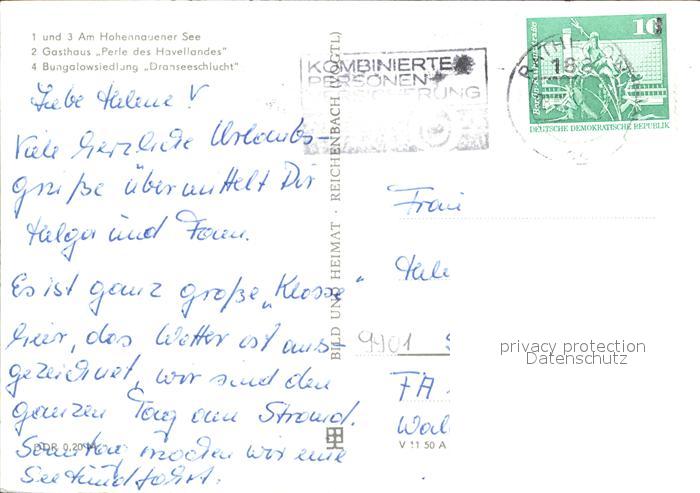 1 und 3 Am Hohennauener See
2 Gasthaus „Perle des Havellandes"
4 Bungalowsiedlung „Dranseeschlucht"
Liebe Helene!
Viele herzliche Urlaubs-
grüße übermittelt Dir
Helga und Fam.
Es ist ganz große „Klasse"
hier, das Wetter ist aus-
gezeichnet, wir sind den
ganzen Tag am Strand.
Sonntag machen wir eine
Seerundfahrt.
DDR 0,20 M
BILD UND HEIMAT · REICHENBACH (VOGTL)
KOMBINIERTE
PERSONEN-
10
Berlin
DEUTSCHE DEMOKRATISCHE REPUBLIK
RATHENOW
18
Frau
Hele
9901
FA
Wal
V 11 50 A
privacy protection
Datenschutz